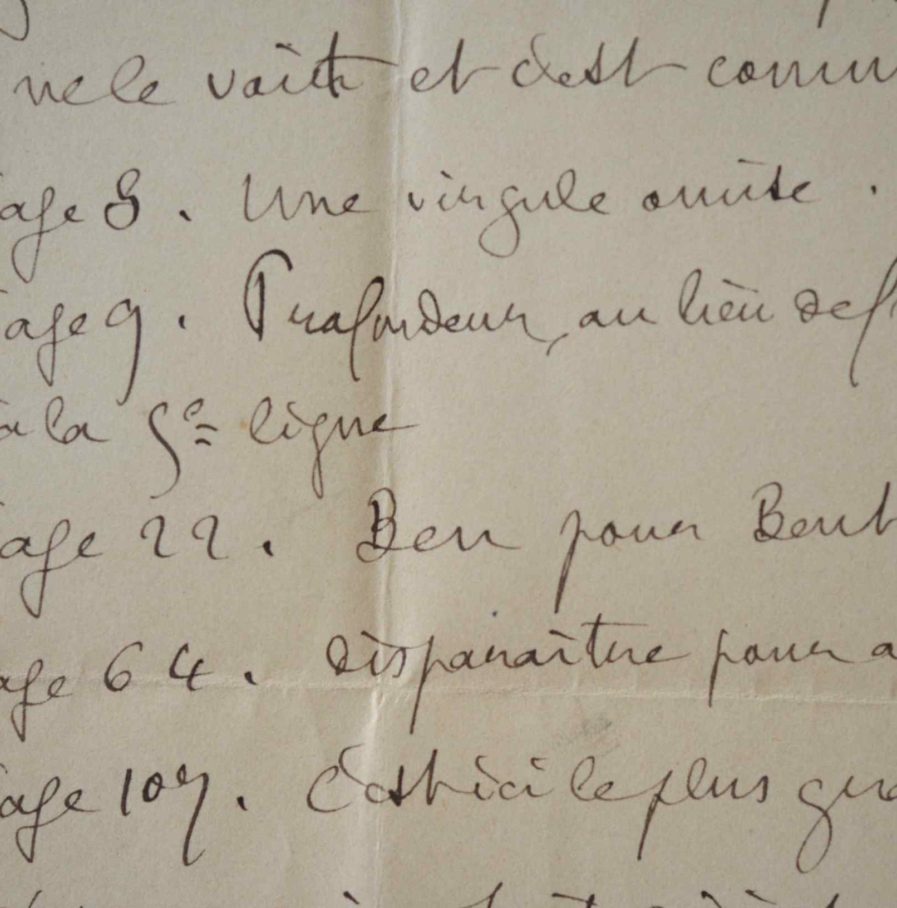 ne le voit et c'est comm
age 8. Une virgule omise.
age 9. Profondeur, au lieu de
à la 5e ligne
age 22. Ben pour Bent
age 64. disparaître pour a
age 107. C'est ici le plus gra